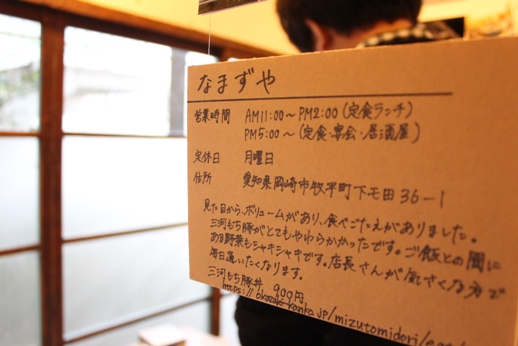 なまずや
営業時間 AM11:00〜PM2:00(定食ランチ)
PM5:00〜(定食・宴会・居酒屋)
定休日 月曜日
住所 愛知県岡崎市牧平町下モ田36-1
見た目から、ボリュームがあり、食べごたえがありました。
三河もち豚がとてもやわらかかったです。ご飯との間に
ある野菜もシャキシャキです。店長さんが気さくな方で
毎日通いたくなります。
三河もち豚丼 900円
https://okazaki-kanko.jp/mizutomidori/